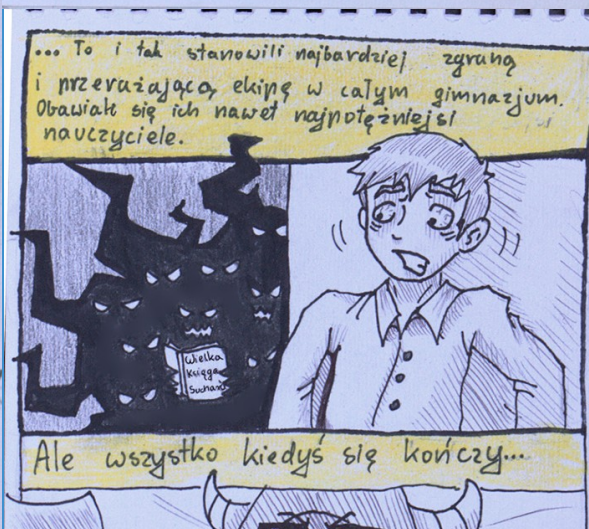 ... To i tak stanowili najbardziej zgraną
i przerażającą ekipę w całym gimnazjum.
Obawiali się ich nawet najpotężniejsi
nauczyciele.
Wielka
Księga
Sucharów
Ale wszystko kiedyś się kończy...